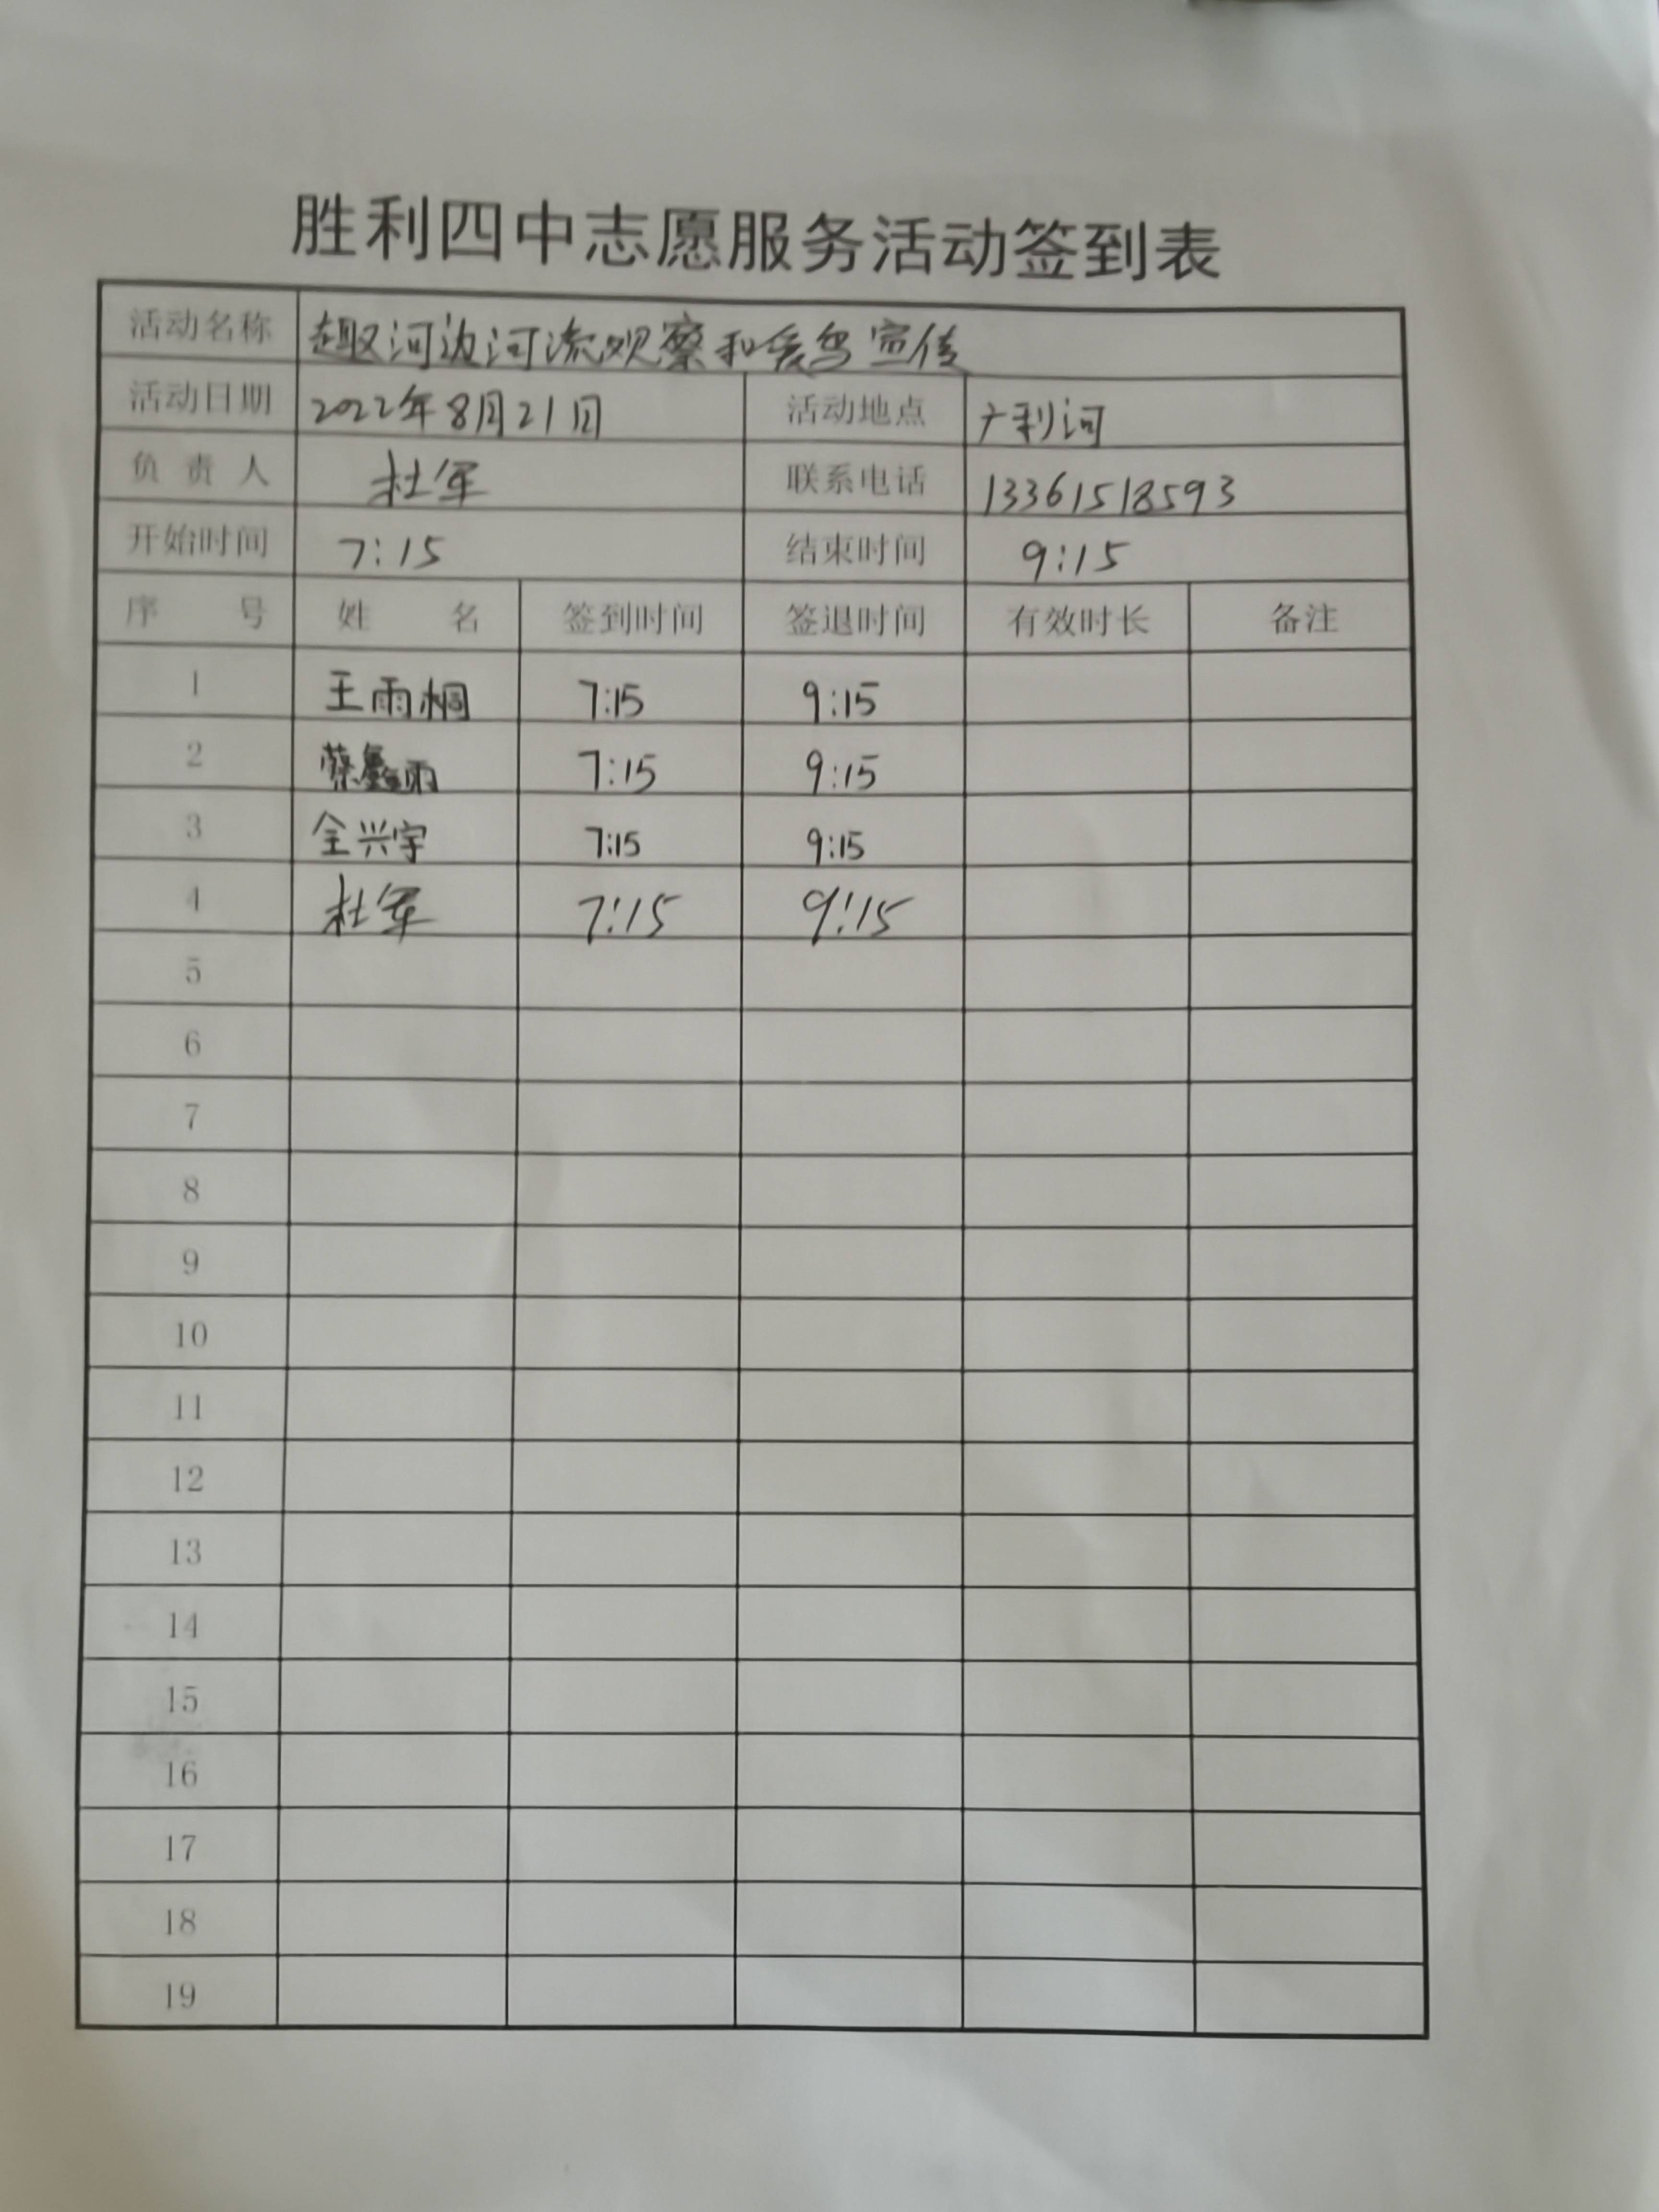 胜利四中志愿服务活动签到表
活动名称 趣河边河流观察和爱鸟宣传
活动日期 2022年8月21日 活动地点 广利河
负责人 杜军 联系电话 13361518593
开始时间 7:15 结束时间 9:15
序号 姓名 签到时间 签退时间 有效时长 备注
1 王雨桐 7:15 9:15
2 蔡 雨 7:15 9:15
3 全兴宇 7:15 9:15
4 杜军 7:15 9:15
5
6
7
8
9
10
11
12
13
14
15
16
17
18
19